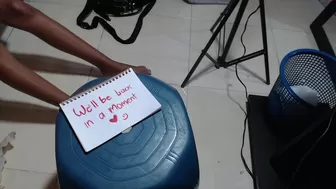 We'll be back
in a moment